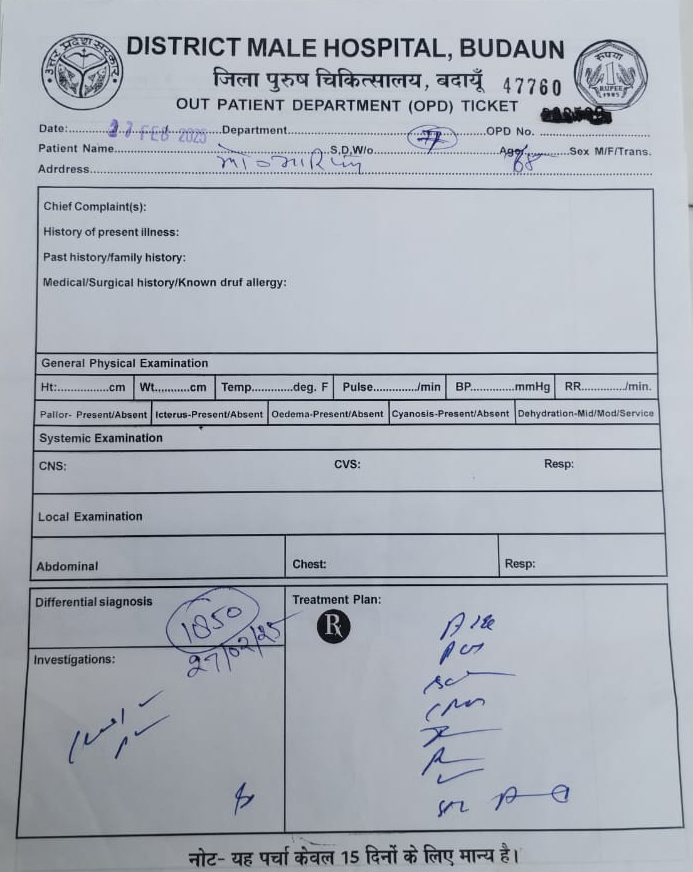 उत्तर प्रदेश सरकार
रुपया
1
RUPEE
1985
DISTRICT MALE HOSPITAL, BUDAUN
जिला पुरुष चिकित्सालय, बदायूँ 47760
OUT PATIENT DEPARTMENT (OPD) TICKET
Date: 27 FEB 2025 Department 77 OPD No.
Patient Name S,D,W/o Age 68 Sex M/F/Trans.
Adrdress
Chief Complaint(s):
History of present illness:
Past history/family history:
Medical/Surgical history/Known druf allergy:
General Physical Examination
Ht:............cm Wt..........cm Temp............deg. F Pulse............./min BP.............mmHg RR............./min.
Pallor- Present/Absent Icterus-Present/Absent Oedema-Present/Absent Cyanosis-Present/Absent Dehydration-Mid/Mod/Service
Systemic Examination
CNS: CVS: Resp:
Local Examination
Abdominal Chest: Resp:
Differential siagnosis Treatment Plan:
1850
27/02/25
Rx
Investigations:
नोट- यह पर्चा केवल 15 दिनों के लिए मान्य है।